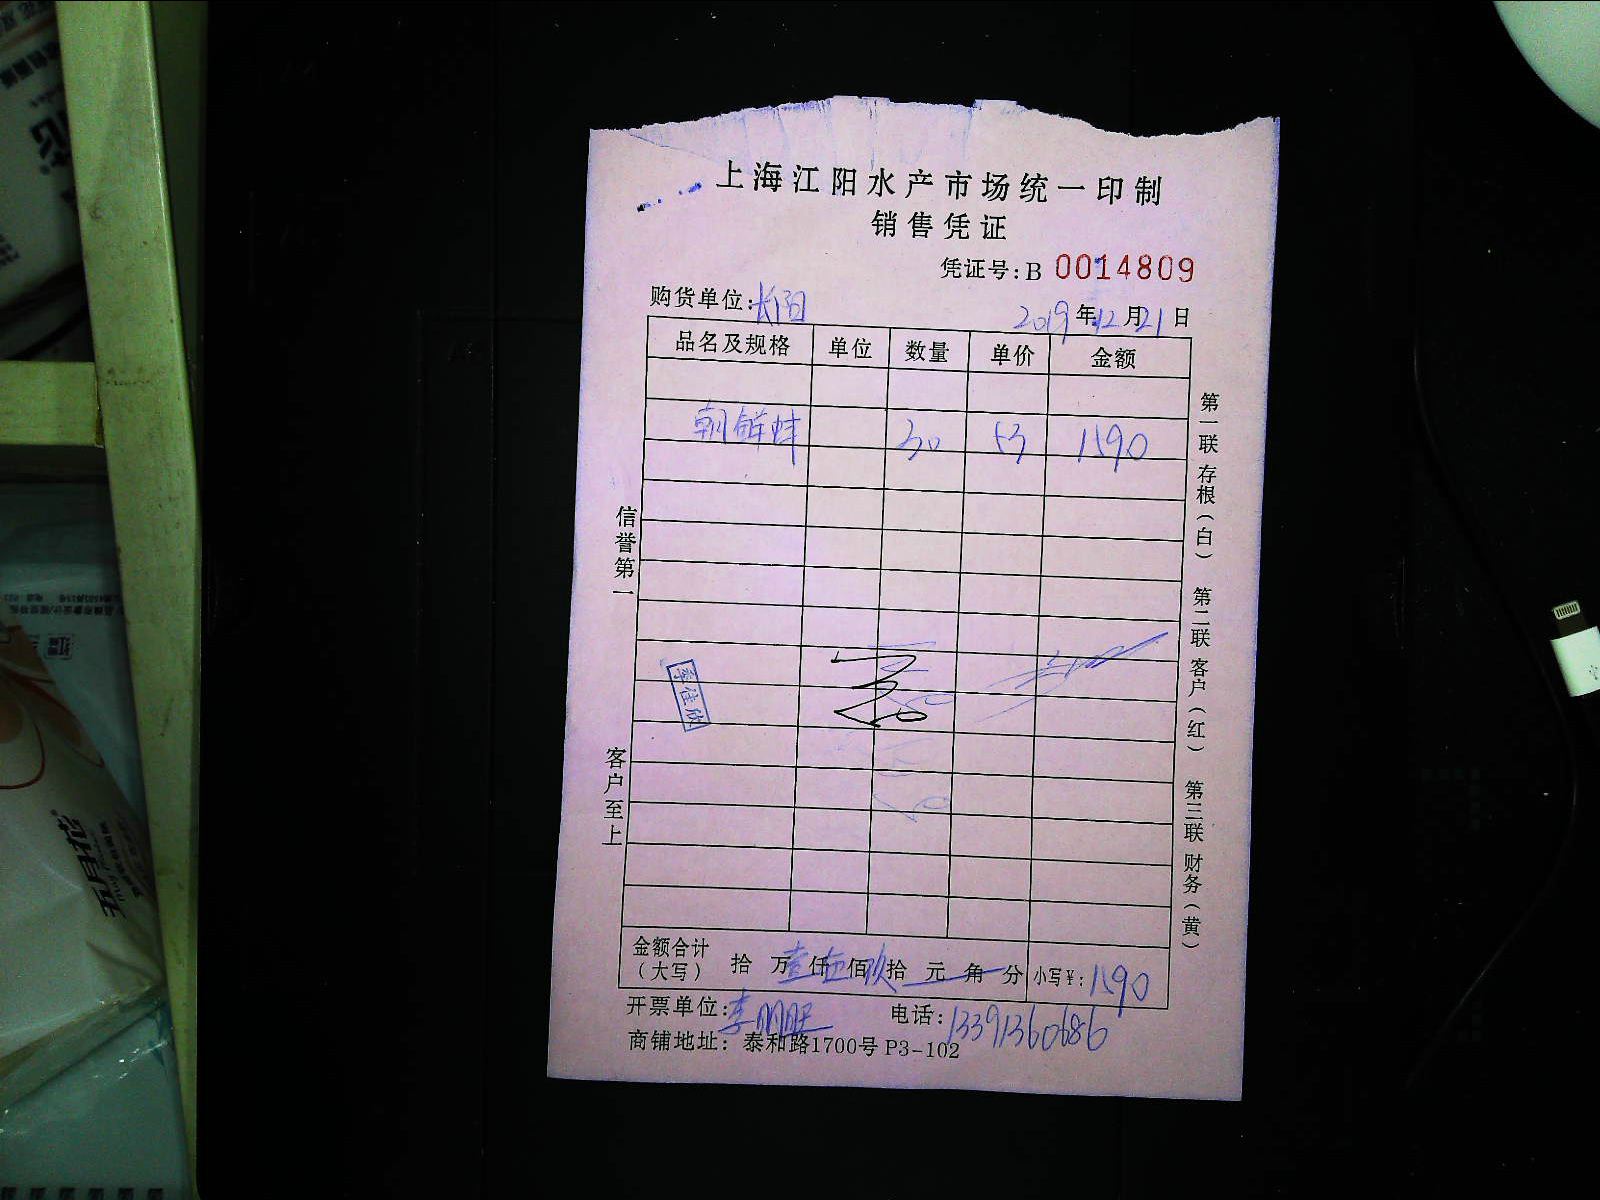 上海江阳水产市场统一印制
销售凭证
凭证号:B 0014809
购货单位:长阳
2019年12月21日
品名及规格 单位 数量 单价 金额
朝鲜蚌 30 53 1590
信誉第一
客户至上
第一联 存根(白) 第二联 客户(红) 第三联 财务(黄)
李佳欣
金额合计
(大写) 拾 万壹仟伍佰玖拾 元 角 分 小写¥:1590
开票单位:李明旺 电话:13391360686
商铺地址: 泰和路1700号 P3-102
五月花